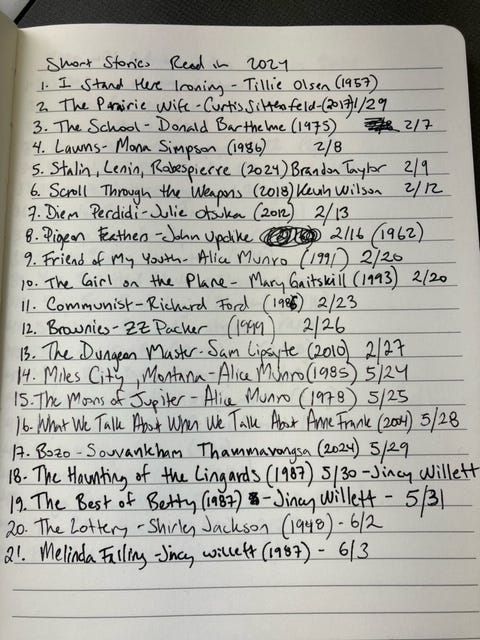 Short Stories Read in 2024
1. I Stand Here Ironing - Tillie Olsen (1957)
2. The Prairie Wife - Curtis Sittenfeld - (2017) 1/29
3. The School - Donald Barthelme (1975) 2/7
4. Lawns - Mona Simpson (1986) 2/8
5. Stalin, Lenin, Robespierre (2024) Brandon Taylor 2/9
6. Scroll Through the Weapons (2018) Kevin Wilson 2/12
7. Diem Perdidi - Julie Otsuka (2012) 2/13
8. Pigeon Feathers - John Updike 2/16 (1962)
9. Friend of My Youth - Alice Munro (1991) 2/20
10. The Girl on the Plane - Mary Gaitskill (1993) 2/20
11. Communist - Richard Ford (1985) 2/23
12. Brownies - ZZ Packer (1999) 2/26
13. The Dungeon Master - Sam Lipsyte (2010) 2/27
14. Miles City, Montana - Alice Munro (1985) 5/24
15. The Moons of Jupiter - Alice Munro (1978) 5/25
16. What We Talk About When We Talk About Anne Frank 5/28
17. Bozo - Souvankham Thammavongsa (2024) 5/29
18. The Haunting of the Lingards (1987) 5/30 - Jincy Willett
19. The Best of Betty (1987) - Jincy Willett - 5/31
20. The Lottery - Shirley Jackson (1948) - 6/2
21. Melinda Falling - Jincy Willett (1987) - 6/3